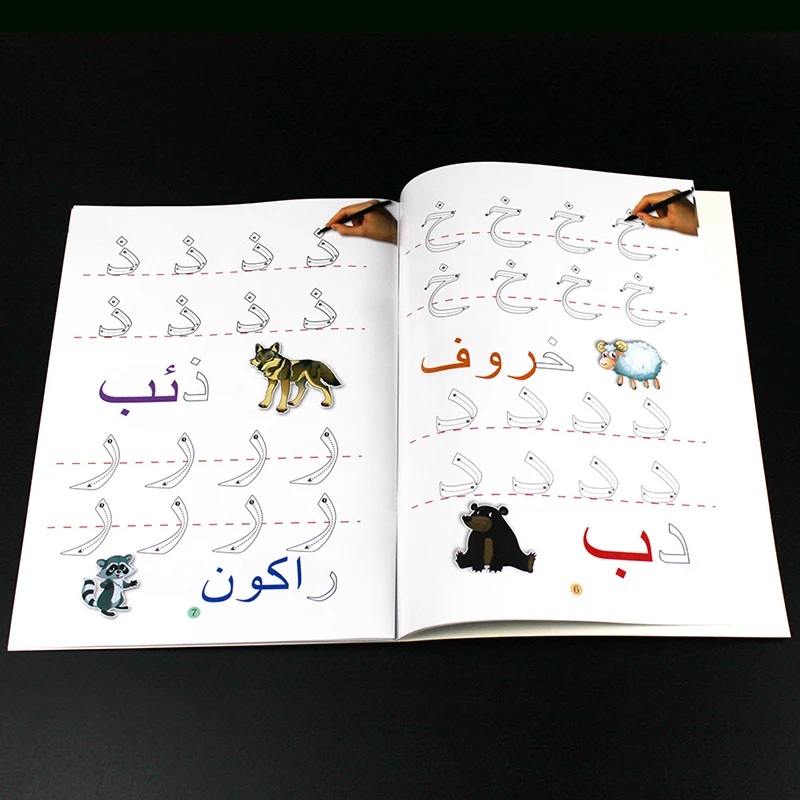 خ خ خ خ
خ خ خ خ
خروف
د د د د
د د د د
دب
6
ذ ذ ذ ذ
ذ ذ ذ ذ
ذئب
ر ر ر ر
ر ر ر ر
راكون
7